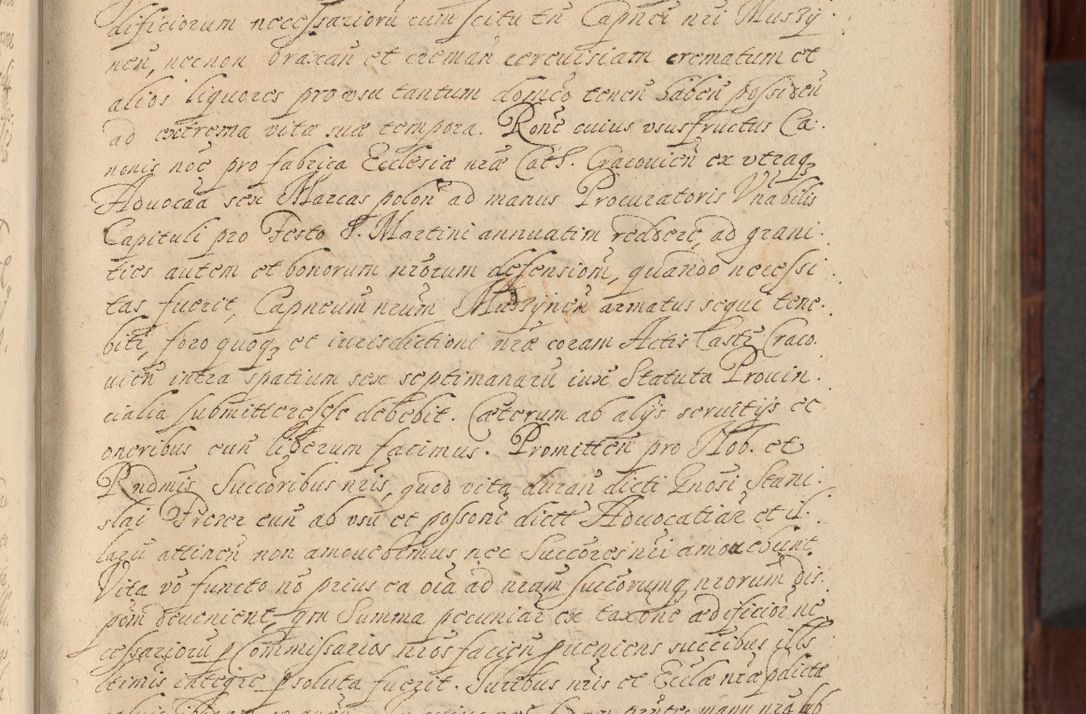 dificiorum necessarioru cum scitu tn Capnei nri Muszy
nen, necnon braxan et creman cervisiam crematum et
alios liquores pro usu tantum domco tenen haben possiden
ad extrema vitæ suæ tempora. Rone cuius ususfructus Ca
nonis noe pro fabrica Ecclesiæ nræ Cath. Cracovien ex utraq
Advocaa sex Marcas polon ad manus Procuratoris Vnabilis
Capituli pro Festo S. Martini annuatim reddere, ad grani
ties autem et bonorum nrorum defensiom, quando necessi
tas fuerit, Capneum nrum Muszynen armatus sequi tene
bitr, foro quoq et iurisdictioni nræ coram Actis Castr Craco
vien intra spatium sex septimanaru iuxe Statuta Provin
cialia submitteresese debebit. Cæterum ab alijs servitijs et
oneribus eun liberum facimus. Promitten pro Nob. et
Rndmis Succoribus nris, quod vita duran dicti Gnosi Stani
slai Frerer eun ab usu et possone dictt Advocatiar et il
laru attinen non amovebimus nec Succores nri amovebunt.
Vita vo functo no prius ea oia ad nram succorumq nrorum dis
pom devenient, qm Summa pecuniar ex taxone ædificior ne
cessarioru p Commissarios nros facien pveniens succibus ills
ltimis integre psoluta fuerit. Juribus nris et Ecclæ nræ pdictæ